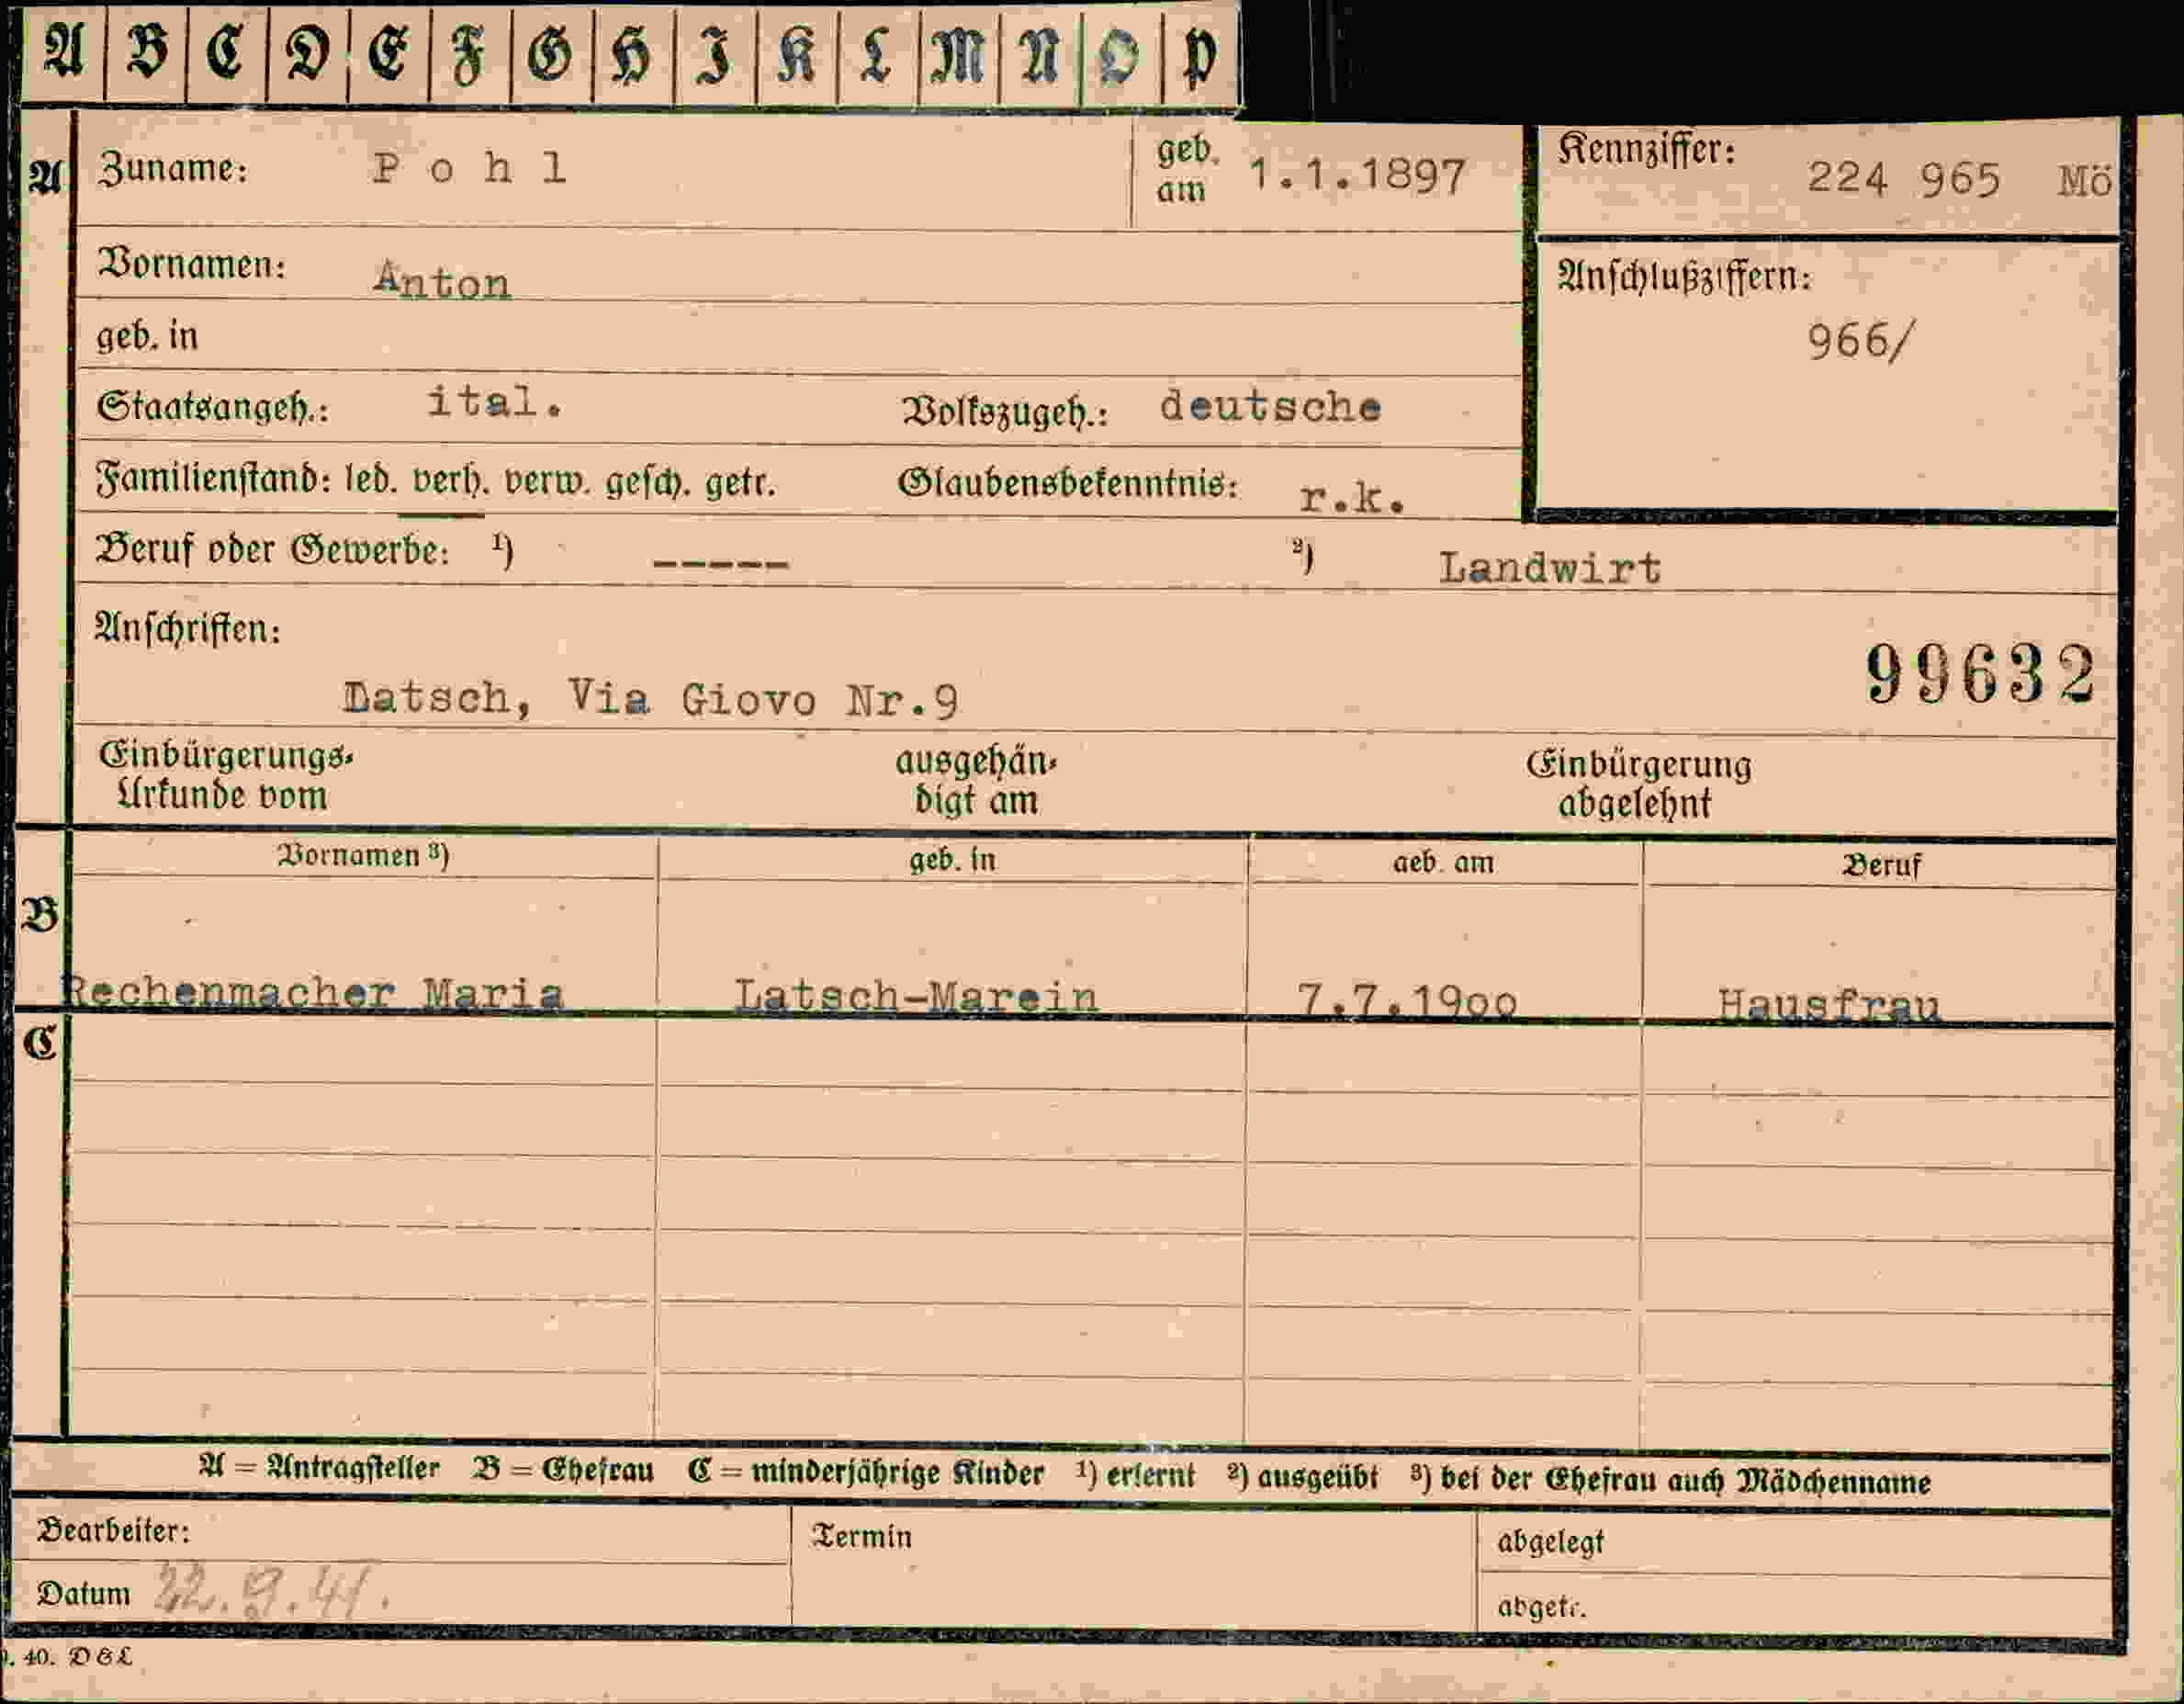 A B C D E F G H I K L M N O P
A Zuname: Pohl geb. am 1.1.1897 Kennziffer: 224 965 Mö
Vornamen: Anton Anschlußziffern:
geb. in 966/
Staatsangeh.: ital. Volkszugeh.: deutsche
Familienstand: led. verh. verw. gesch. getr. Glaubensbekenntnis: r.k.
Beruf oder Gewerbe: 1) ----- 2) Landwirt
Anschriften: 99632
Latsch, Via Giovo Nr.9
Einbürgerungs- ausgehän- Einbürgerung
Urkunde vom digt am abgelehnt
Vornamen 3) geb. in geb. am Beruf
B
Rechenmacher Maria Latsch-Marein 7.7.1900 Hausfrau
C
A = Antragsteller B = Ehefrau C = minderjährige Kinder 1) erlernt 2) ausgeübt 3) bei der Ehefrau auch Mädchenname
Bearbeiter: Termin abgelegt
Datum 22.9.41. abgetr.
40. DGL